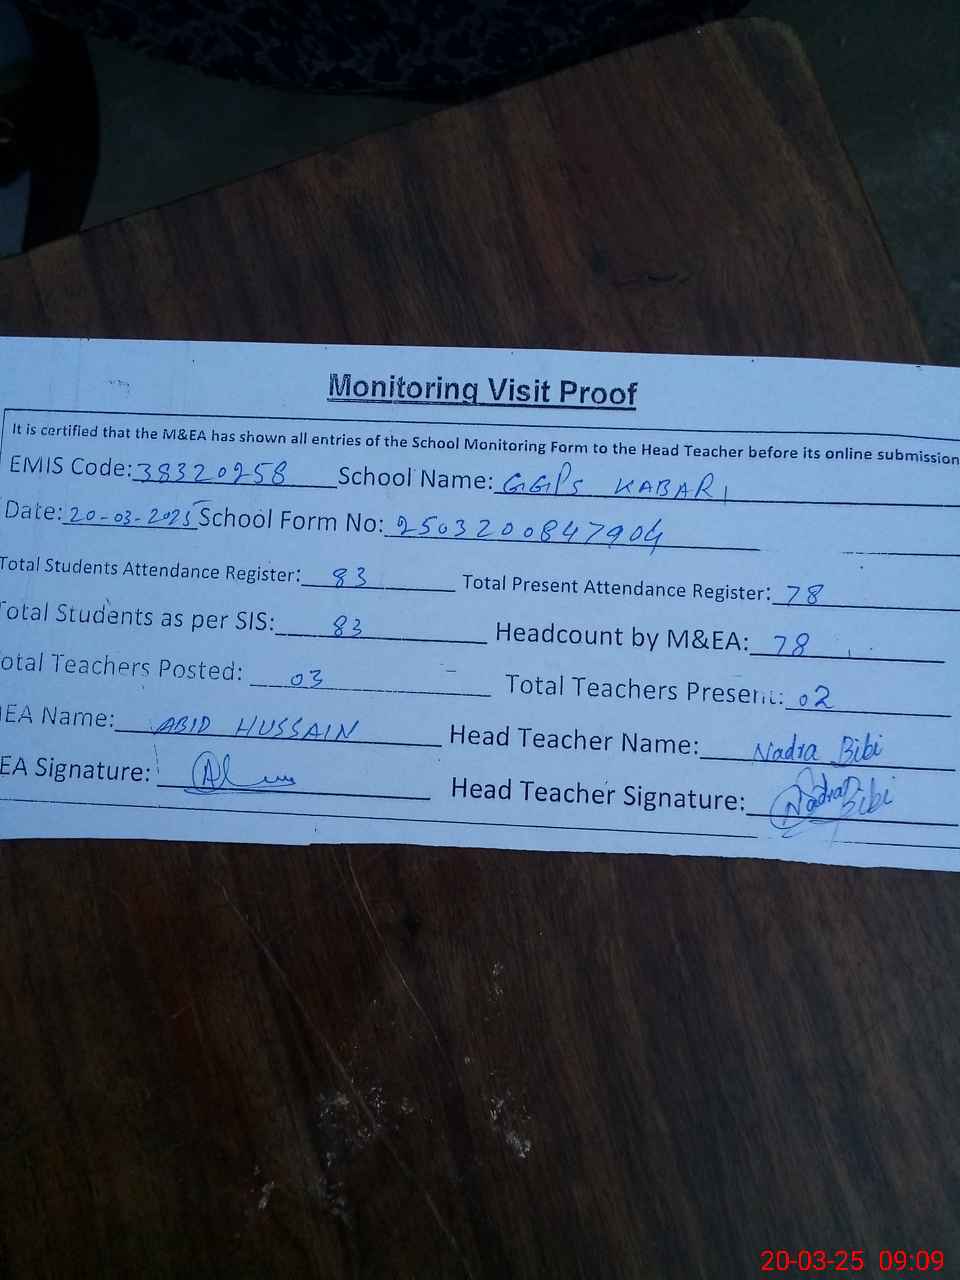 Monitoring Visit Proof
It is certified that the M&EA has shown all entries of the School Monitoring Form to the Head Teacher before its online submission
EMIS Code: 38320258 School Name: GGPS KABARI
Date: 20-03-2025 School Form No: 2503200847904
Total Students Attendance Register: 83 Total Present Attendance Register: 78
Total Students as per SIS: 83 Headcount by M&EA: 78
otal Teachers Posted: 03 Total Teachers Present: 02
EA Name: ABID HUSSAIN Head Teacher Name: Nadra Bibi
EA Signature: Head Teacher Signature: Nadra Bibi
20-03-25 09:09